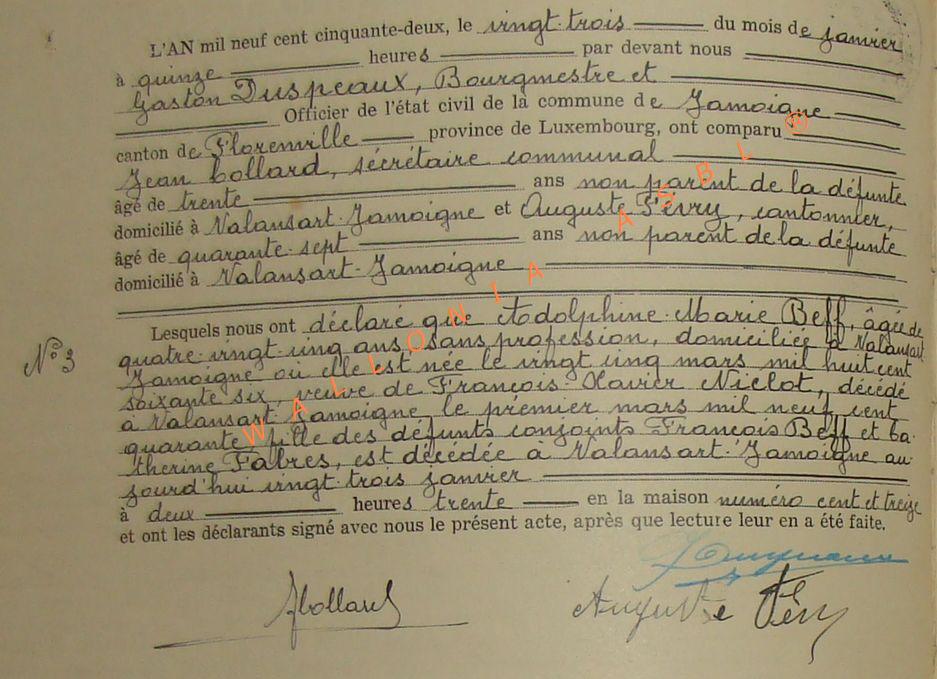 L'AN mil neuf cent cinquante-deux, le vingt-trois du mois de janvier
à quinze heures par devant nous
Gaston Duspeaux, Bourgmestre et
Officier de l'état civil de la commune de Jamoigne
canton de Florenville province de Luxembourg, ont comparu
Jean Collard, sécrétaire communal
âgé de trente ans non parent de la défunte
domicilié à Valansart-Jamoigne et Auguste Févry, cantonnier,
âgé de quarante-sept ans non parent de la défunte
domicilié à Valansart-Jamoigne
Lesquels nous ont déclaré que Adolphine-Marie Beff, âgée de
N° 3
quatre-vingt-cinq ans, sans profession, domiciliée à Valansart-
Jamoigne où elle est née le vingt cinq mars mil huit cent
soixante six, veuve de François-Xavier Niclot, décédé
à Valansart-Jamoigne, le premier mars mil neuf cent
quarante, fille des défunts conjoints François Beff et Ca-
therine Fabres, est décédée à Valansart-Jamoigne au-
jourd'hui vingt-trois janvier
à deux heures trente en la maison numéro cent et treize
et ont les déclarants signé avec nous le présent acte, après que lecture leur en a été faite.
JCollard
Auguste Févry
WALLONIA ASBL ®